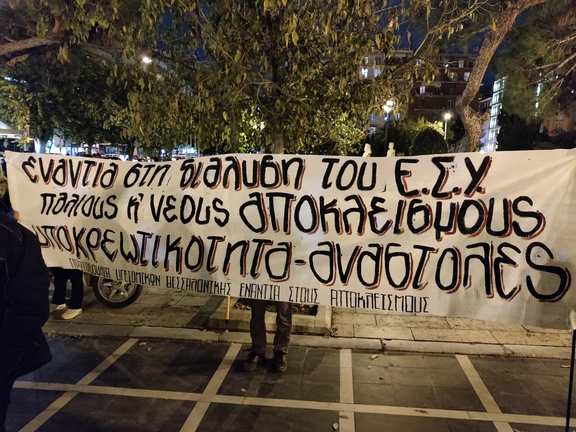 ΕΝΑΝΤΙΑ ΣΤΗ ΔΙΑΛΥΣΗ ΤΟΥ Ε.Σ.Υ.
ΠΑΛΙΟΥΣ Κ' ΝΕΟΥΣ ΑΠΟΚΛΕΙΣΜΟΥΣ
ΥΠΟΧΡΕΩΤΙΚΟΤΗΤΑ-ΑΝΑΣΤΟΛΕΣ
ΠΡΩΤΟΒΟΥΛΙΑ ΥΓΕΙΟΝΟΜΙΚΩΝ ΘΕΣΣΑΛΟΝΙΚΗΣ ΕΝΑΝΤΙΑ ΣΤΟΥΣ ΑΠΟΚΛΕΙΣΜΟΥΣ